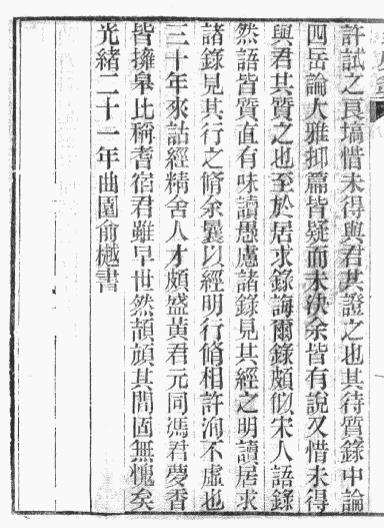 許試之良壔惜未得與君共證之也其待質錄中論
四岳論大雅抑篇皆疑而未決余皆有說又惜未得
與君共質之也至於居求錄誨爾錄頗似宋人語錄
然語皆質直有味讀愚廬諸錄見其經之明讀居求
諸錄見其行之脩余曩以經明行脩相許洵不虛也
三十年來詁經精舍人才頗盛黃君元同馮君夢香
皆擁皋比稱耆宿君雖早世然頡頏其間固無愧矣
光緒二十一年曲園俞樾書